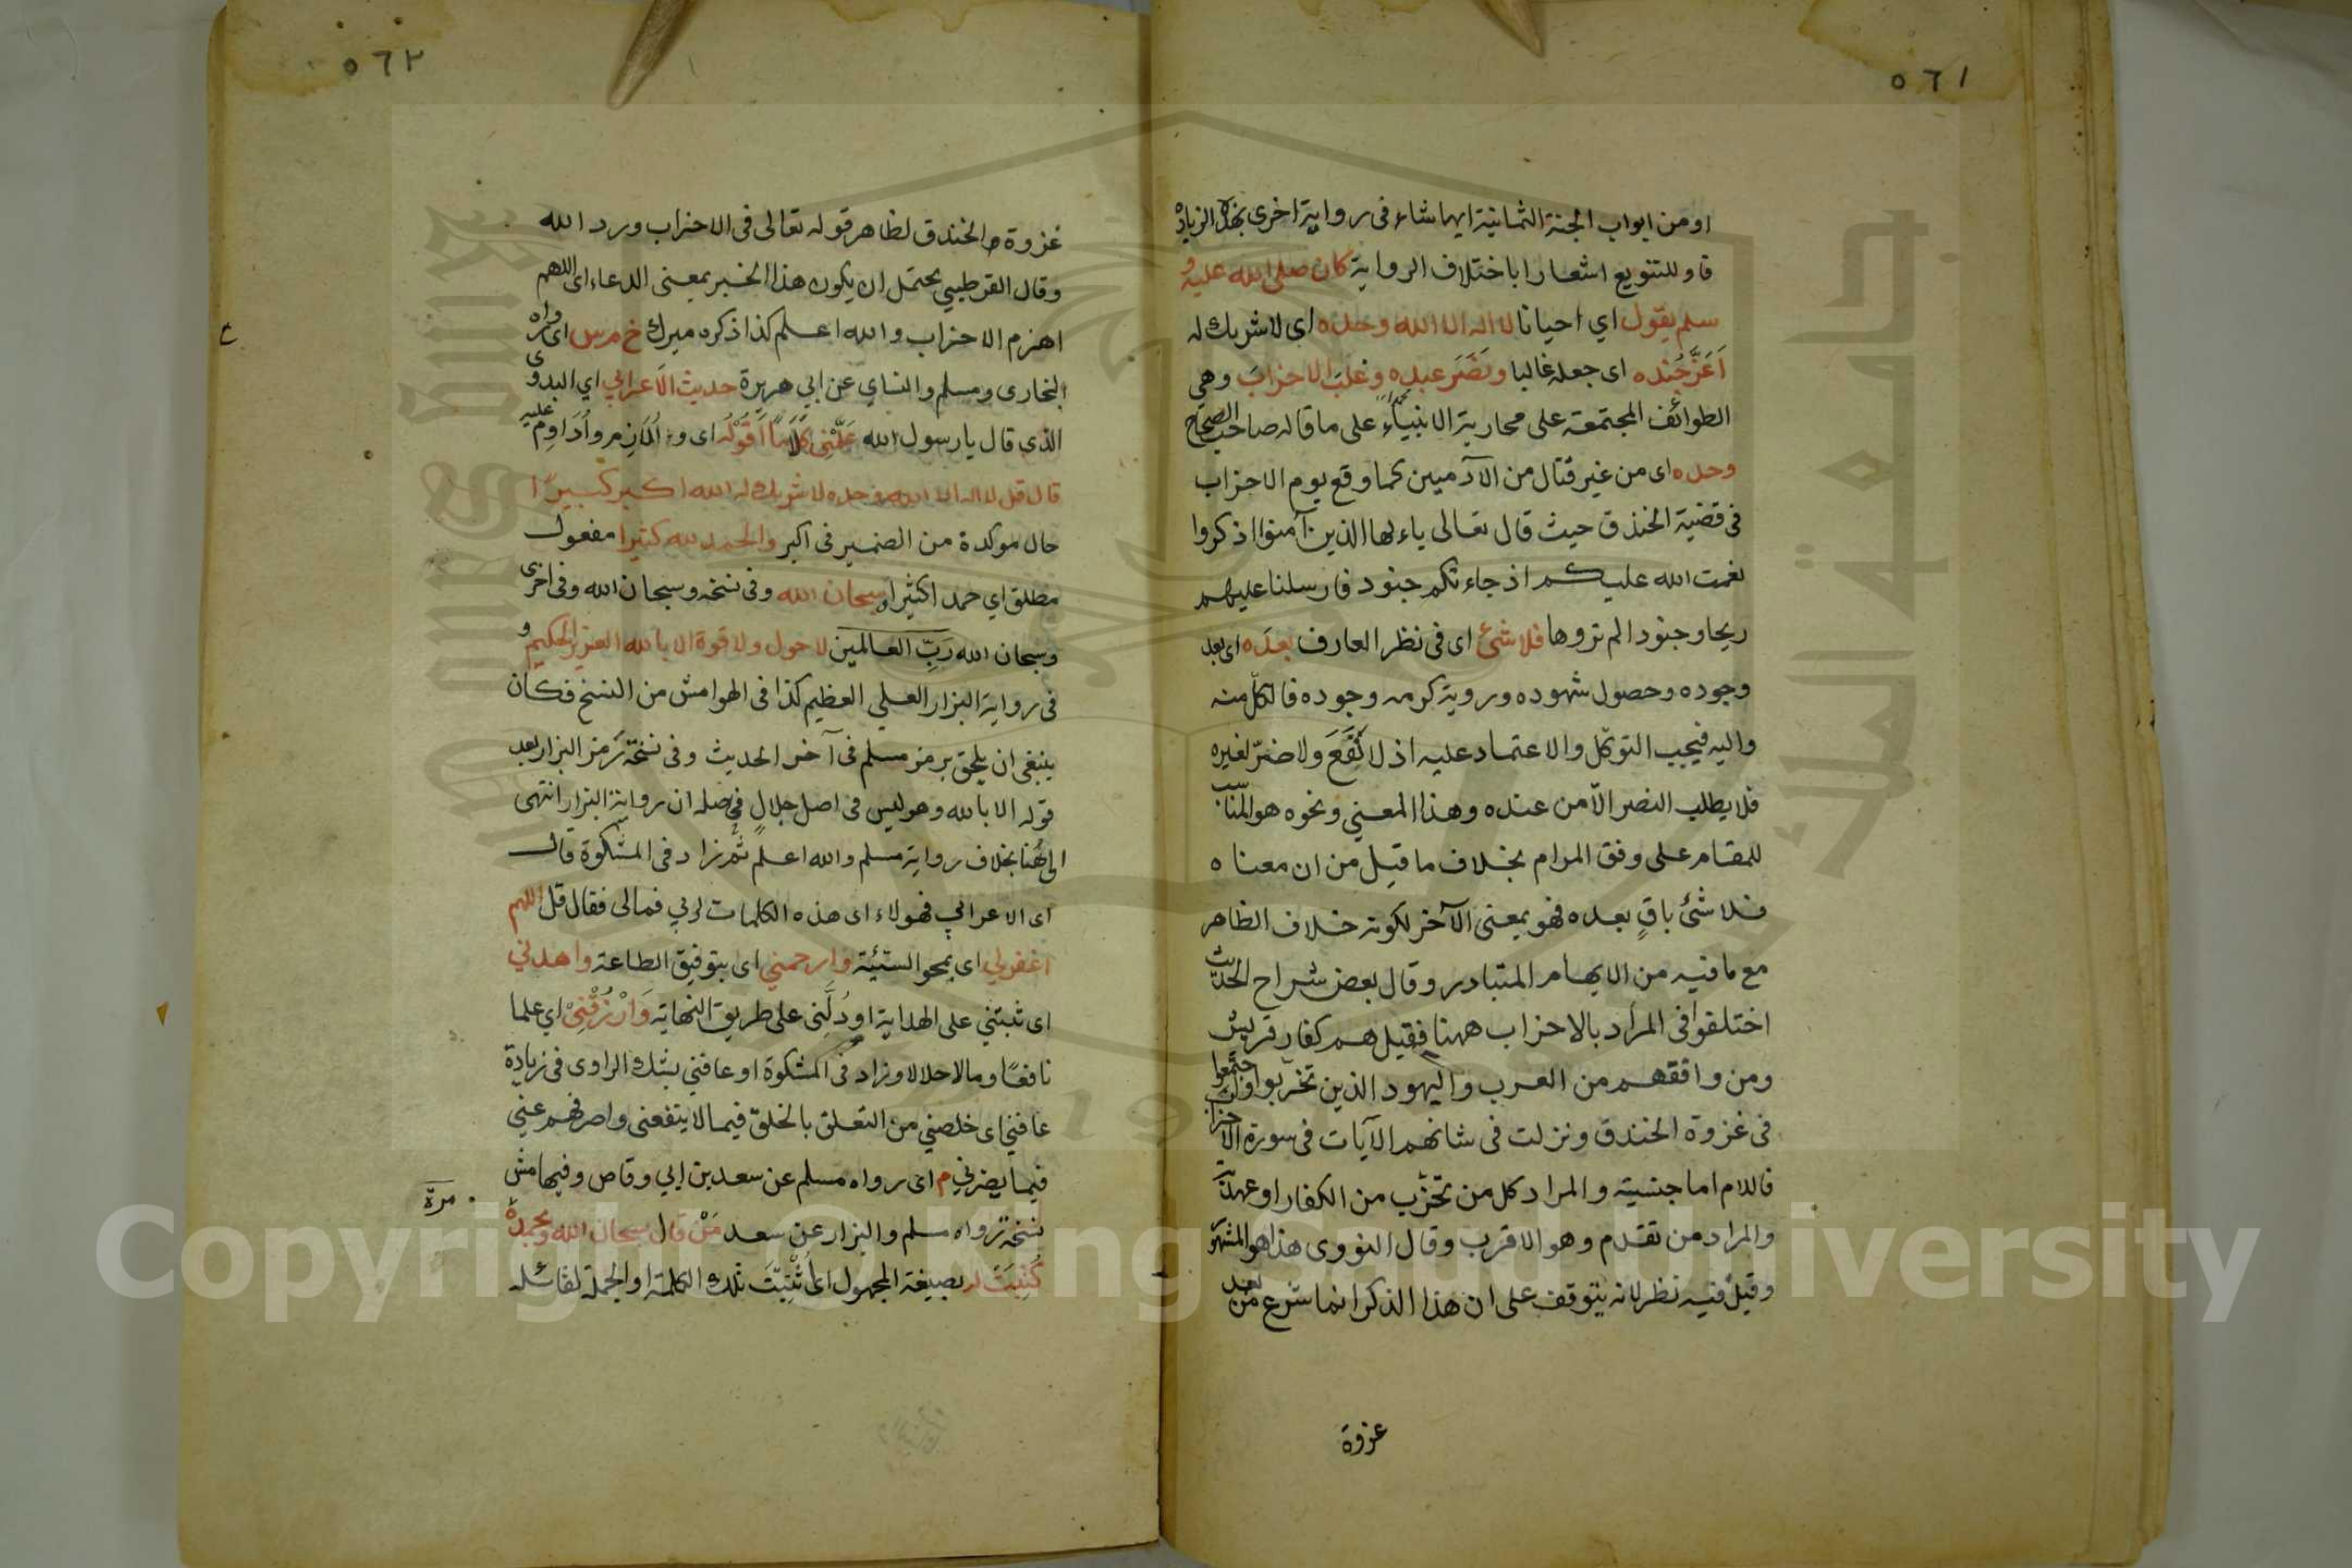 ٥٦١
او من ابواب الجنة الثمانية ايها شاء فى رواية اخرى بهذه الزيادة
فاو للتنويع اشعارا باختلاف الرواية كان صلى الله عليه و
سلم يقول اي احيانا لا اله الا الله وحده اى لا شريك له
اَعَزَّ جُنده اى جعله غالبا ونَصَرَ عبده وغلبَ الاحزابَ وهي
الطوائف المجتمعة على محاربة الانبياء على ما قاله صاحب الصحاح
وحده اى من غير قتال من الآدميين كما وقع يوم الاحزاب
فى قضية الخندق حيث قال تعالى ياءيها الذين آمنوا اذكروا
نعمت الله عليكم اذ جاءتكم جنود فارسلنا عليهم
ريحا وجنودا لم تروها فلا شئ اى فى نظر العارف بعدَه اى بعد
وجوده وحصول شهوده وروية كرمه وجوده فالكل منه
واليه فيجب التوكّل والاعتماد عليه اذ لا نَفْعَ ولا ضرّ لغيره
فلا يطلب النصر الّا من عنده وهذا المعنى ونحوه هو المناسب
للمقام على وفق المرام بخلاف ما قيل من ان معناه
فلا شئ باقٍ بعده فهو بمعنى الآخر لكونه خلاف الظاهر
مع ما فيه من الايهام المتبادر وقال بعض شراح الحديث
اختلفوا فى المراد بالاحزاب ههنا فقيل هم كفار قريش
ومن وافقهم من العرب واليهود الذين تحزّبوا واجتمعوا
فى غزوة الخندق ونزلت فى شانهم الآيات فى سورة الاحزاب
فاللام اما جنسية والمراد كل من تحزّب من الكفار او عهدية
والمراد من تقدم وهو الاقرب وقال النووى هذا هو المشهور
وقيل فيه نظر لانه يتوقف على ان هذا الذكر انما شرع من بعد
غزوة
٥٦٢
غزوة الخندق لظاهر قوله تعالى فى الاحزاب ورد الله
وقال القرطبي يحتمل ان يكون هذا الخبر بمعنى الدعاء اى اللهم
اهزم الاحزاب والله اعلم كذا ذكره ميرك خ م س اى رواه
البخارى ومسلم والنساي عن ابي هريرة حديث الاَعرابي اي البدوى
الذى قال يا رسول الله عَلِّمْنى كَلَامًا اَقُوْلُه اى و اُلَازِم واُدَاوِم عليه
قال قل لا اله الا الله وحده لا شريك له الله اكبر كبيرًا
حال موكدة من الضمير فى اكبر والحمد لله كثيرا مفعول
مطلق اي حمدا كثيرا وسبحان الله وفى نسخه وسبحان الله وفى اخرى
وسبحان الله رَبِّ العالمين لا حول ولا قوة الا بالله العزيز الحكيم و
فى رواية البزار العلي العظيم كذا فى الهوامش من النسخ فكان
ينبغى ان يلحق برمز مسلم فى آخر الحديث وفى نسخة رَمز البزار بعد
قوله الا بالله وهو ليس فى اصل جلالٍ ان رواية البزار انتهى
الى هُنا بخلاف رواية مسلم والله اعلم ثم زاد فى المشكوة قال
اى الاعرابي فهولاء اى هذه الكلمات لربي فمالى فقال قل اللهم
اغفرلي اى بمحو السّيئة وارحمني اى بتوفيق الطاعة واهدني
اى ثبتني على الهداية او دُلَّنى على طريق النهاية وَارْزُقْنِىْ اي علما
نافعًا ومالا حلالا وزاد فى المشكوة او عافني بشك الراوى فى زيادة
عافني اى خلصني من التعلق بالخلق فيما لا ينفعنى واصرفهم عنى
فيما يضرني م اى رواه مسلم عن سعد بن ابي وقاص وفيها مش
نسخة رواه مسلم والبزار عن سعد مَنْ قال سبحان الله وبحمده
كُتِبَتْ له بصيغة المجهول اى اُثْبِتَتْ تلك الكلمة او الجملة لقائله
مرّة
Copyright © King Saud University